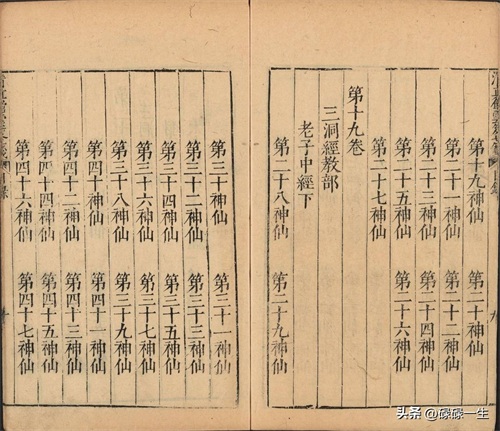 第十九神仙 第二十神仙
第二十一神仙 第二十二神仙
第二十三神仙 第二十四神仙
第二十五神仙 第二十六神仙
第二十七神仙
第十九卷
三洞經教部
老子中經下
第二十八神仙 第二十九神仙
第三十神仙 第三十一神仙
第三十二神仙 第三十三神仙
第三十四神仙 第三十五神仙
第三十六神仙 第三十七神仙
第三十八神仙 第三十九神仙
第四十神仙 第四十一神仙
第四十二神仙 第四十三神仙
第四十四神仙 第四十五神仙
第四十六神仙 第四十七神仙
头条 @碌碌一生